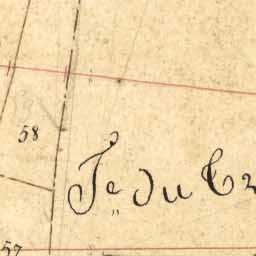 58
Je du Cr
57